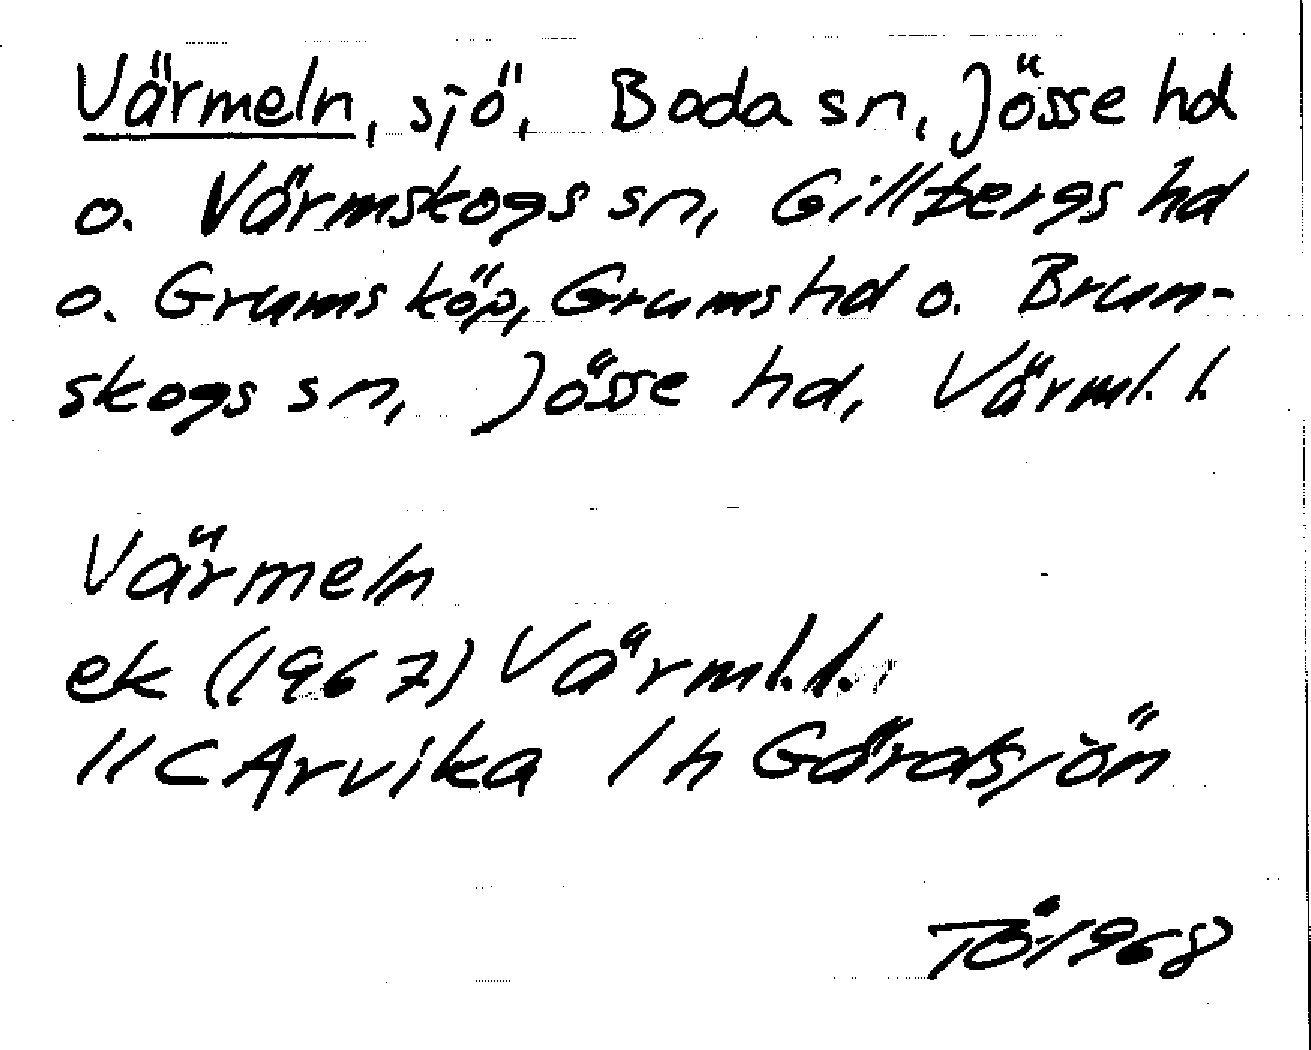 Värmeln, sjö, Boda sn, Jösse hd
o. Värmskogs sn, Gillbergs hd
o. Grums köp, Grums hd o. Brun-
skogs sn, Jösse hd, Värml. l.
Värmeln
ek (1967) Värml. l.
11C Arvika 1 h Gårdsjön
TÖ 1968